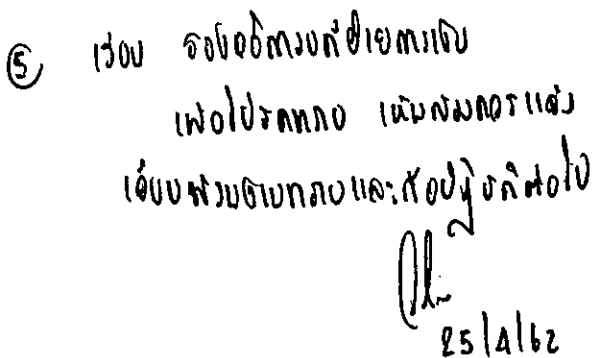 ⑤ เรียน รองอธิการบดีฝ่ายการเงิน
เพื่อโปรดทราบ เห็นสมควรแจ้ง
เวียนหน่วยงานทราบและถือปฏิบัติต่อไป
25/4/62